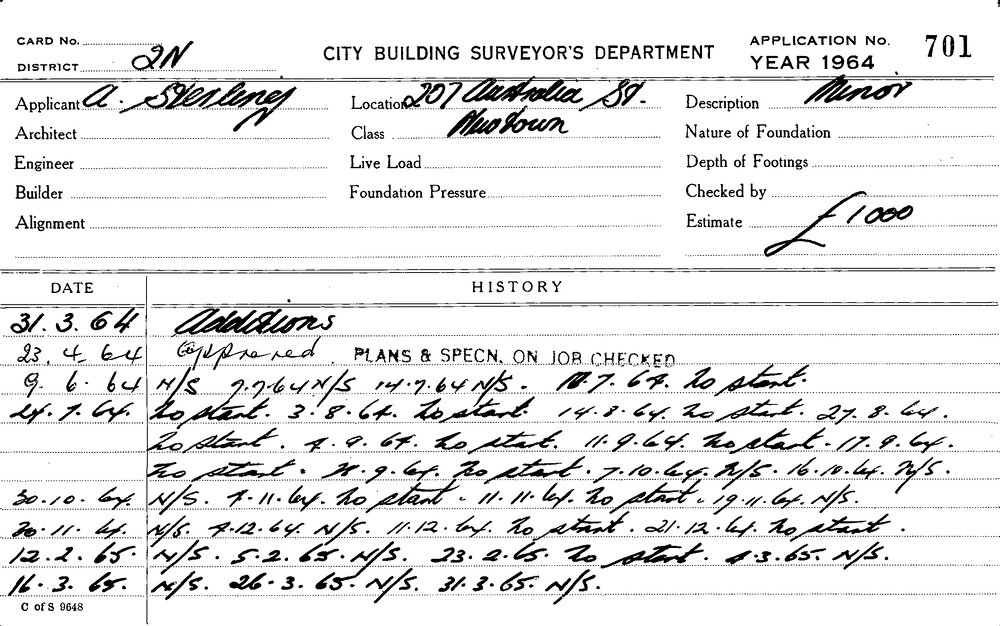 CARD No.
DISTRICT 2N
CITY BUILDING SURVEYOR'S DEPARTMENT
APPLICATION No. 701
YEAR 1964
Applicant A. Sterling
Location 207 Australia St.
Description Minor
Architect
Class Newtown
Nature of Foundation
Engineer
Live Load
Depth of Footings
Builder
Foundation Pressure
Checked by
Alignment
Estimate £1000
DATE HISTORY
31.3.64 Additions
23.4.64 Approved PLANS & SPECN. ON JOB CHECKED
9.6.64 N/S 7.7.64 N/S 14.7.64 N/S. 7.64. No start.
24.7.64. No start. 3.8.64. No start. 14.8.64. No start. 27.8.64.
No start. 4.9.64. No start. 11.9.64. No start. 17.9.64.
No start. 9.64. No start. 7.10.64. N/S. 16.10.64. N/S.
30.10.64 N/S. 4.11.64. No start. 11.11.64. No start. 19.11.64. N/S.
30.11.64 N/S. 4.12.64. N/S. 11.12.64. No start. 21.12.64. No start.
12.2.65 N/S. 5.2.65. N/S. 23.2.65. No start. 4.3.65. N/S.
16.3.65. N/S. 26.3.65. N/S. 31.3.65. N/S.
C of S 9648